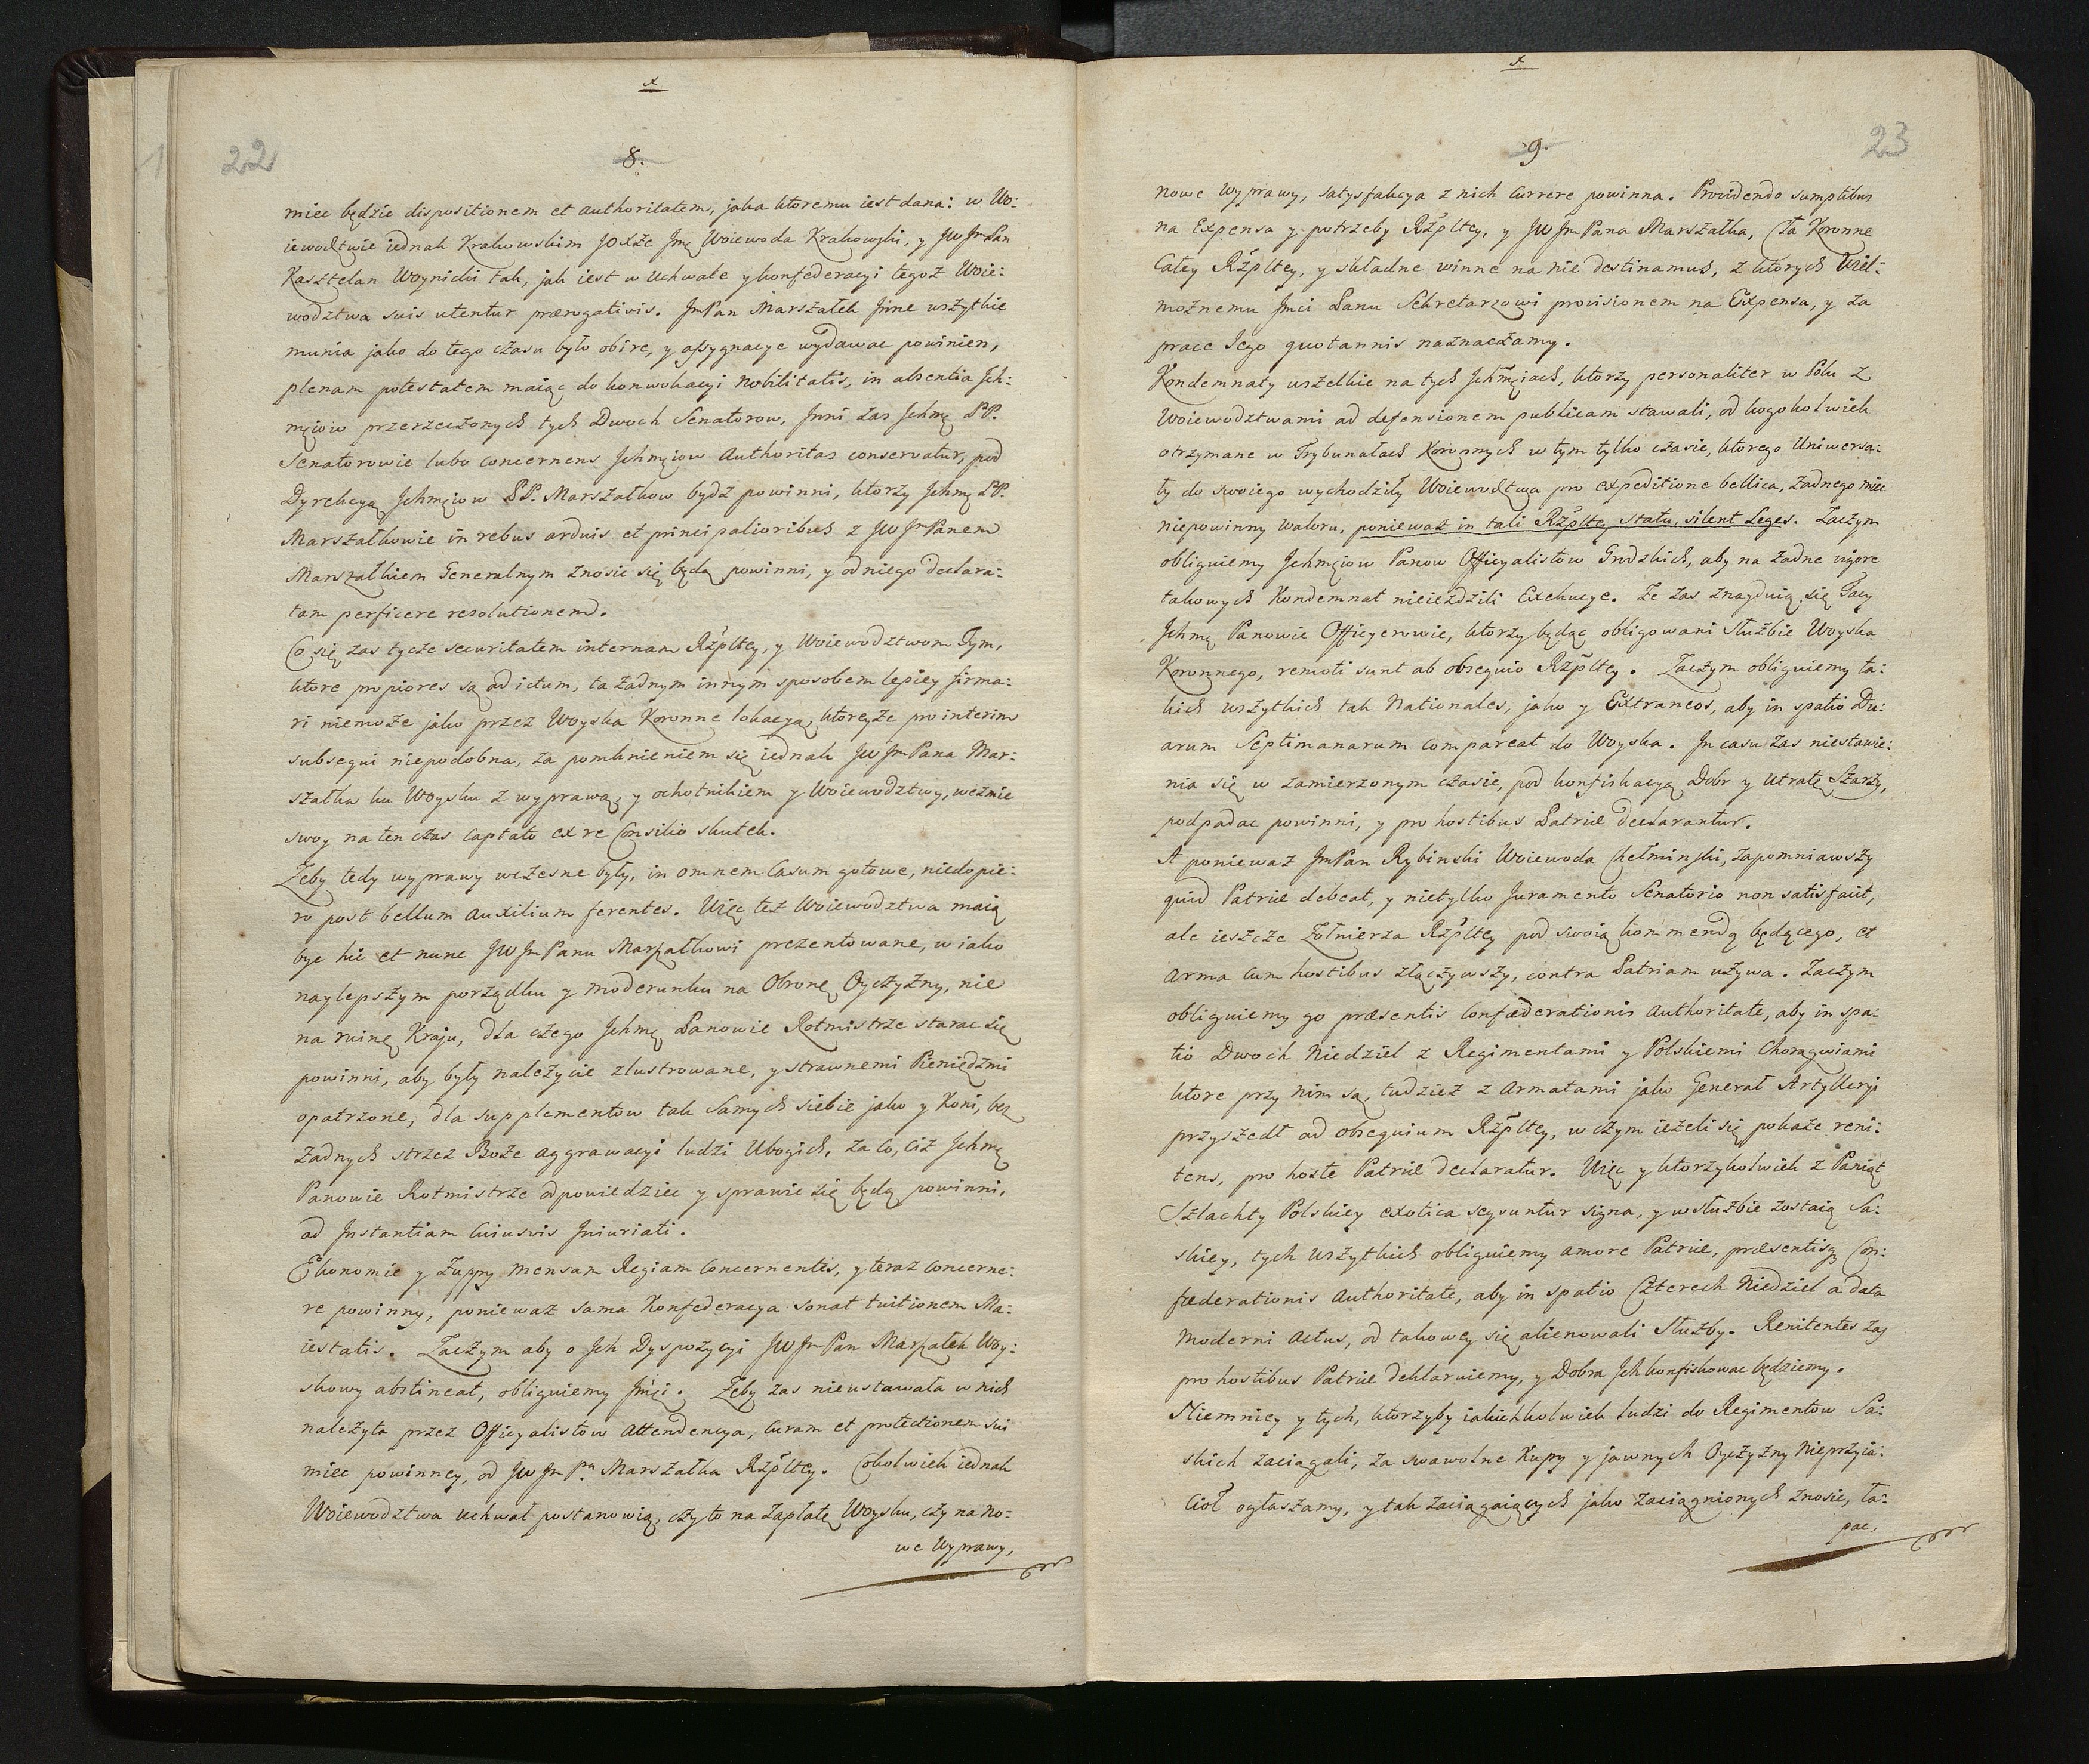 x
22
8.
miec będzie dispositionem et authoritatem, jaka ktoremu iest dana: w Wo:
iewodztwie iednak Krakowskim JOXże Jmę Woiewoda Krakowski, y JWJmPan
Kasztelan Woynicki tak, jak iest w Uchwale y konfederacyi tegoż Woie:
wodztwa suis utentur prærogativis. JmPan Marszałek Jnne wszytkie
munia jako do tego czasu było obire, y assygnacye wydawac powinien,
plenam potestatem maiąc do konwokacyi Nobilitatis, in absentia Jch:
mciow przerzeczonych tych Dwoch Senatorow, Jnni zas Jchmę PP.
Senatorowie lubo concernens Jchmciow Authoritas conservatur, pod
Dyrekcyą Jchmciow PP. Marszałkow bydz powinni, ktorzy Jchmę PP.
Marszałkowie in rebus arduis et principalioribus z JWJmPanem
Marszałkiem Generalnym znosic się będą powinni, y od niego declara:
tam perficere resolutionem.
Co się zas tycze securitatem internam Rzpltey, y Woiewodztwom Tym,
ktore propiores są ad ictum, ta żadnym innym sposobem lepiey firma:
ri niemoże jako przez Woyska Koronne lokacyą, ktoreyże pro interim
subsequi niepodobna, za pomknieniem się iednak JWJmPana Mar:
szałka ku Woysku z wyprawą, y ochotnikiem y Woiewodztwy, weźmie
swoy na ten czas captato ex re Consilio skutek.
Zeby tedy wyprawy wczesne były, in omnem Casum gotowe, niedopie:
ro post bellum auxilium ferentes. Więc też Woiewodztwa maią
byc hic et nunc JWJmPanu Marszałkowi prezentowane, w iako
naylepszym porządku y moderunku na Obronę Oyczyzny, nie
na ruinę Kraju, dla czego Jchmę Panowie Rotmistrze starac się
powinni, aby były należycie zlustrowane, y strawnemi Pieniędzmi
opatrzone, dla supplementow tak Samych siebie jako y Koni, bez
żadnych strzez Boże aggrawacyi ludzi Ubogich, za co, ciż Jchmę
Panowie Rotmistrze odpowiedziec y sprawic się będą powinni,
ad Jnstantiam Cuiusvis Jniuriati.
Ekonomie y Zuppy Mensam Regiam Concernentes, y teraz concerne:
re powinny, ponieważ sama Konfederacya sonat tuitionem Ma:
iestatis. Zaczym aby o Jch Dyspozycyi JWJmPan Marszałek Woy:
skowy abstineat, obliguiemy Jmci. Żeby zas nieustawała w nich
należyta przez Officyalistow Attendencya, Curam et protectionem sui
miec powinney, od JWJmPa Marszałka Rzpltey. Cokolwiek iednak
Woiewodztwa Uchwał postanowią, czy to na Zapłatę Woysku, czy na no:
we Wyprawy,
x
23
9.
nowe Wyprawy, satysfakcya z nich Currere powinna. Providendo sumptibus
na Expensa y potrzeby Rzpltey, y JWJmPana Marszałka, Cła Koronne
Całey Rzpltey, y składne winne na nie destinamus, z ktorych Wiel:
możnemu Jmci Panu Sekretarzowi provisionem na Expensa, y za
prace Jego quotannis naznaczamy.
Kondemnaty wszelkie na tych Jchmciach, ktorzy personaliter w Polu z
Woiewodztwami ad defensionem publicam stawali, od kogokolwiek
otrzymane w Trybunałach Koronnych w tym tylko czasie, ktorego Uniwersa:
ły do swoiego wychodziły Woiewodztwa pro expeditione bellica, żadnego miec
niepowinny waloru, ponieważ in tali Rzpltey statu, silent Leges. Zaczym
obliguiemy Jchmciow Panow Officyalistow Grodzkich, aby na żadne vigore
takowych Kondemnat nieieżdzili Exekucye. Że zas znayduią się Tacy
Jchmę Panowie Officyerowie, ktorzy będąc obligowani Służbie Woyska
Koronnego, remoti sunt ab obsequio Rzpltey. Zaczym obliguiemy ta:
kich wszytkich tak Nationales, jako y Extraneos, aby in spatio Du:
arum Septimanarum compareat do Woyska. Jn casu zas niestawie:
nia się w zamierzonym czasie, pod konfiskacyą Dobr y Utratę Szarży,
podpadac powinni, y pro hostibus Patriæ declarantur.
A ponieważ JmPan Rybinski Woiewoda Chełminski, zapomniawszy
quid Patriæ debeat, y nietylko Juramento Senatorio non satisfacit,
ale ieszcze Żołnierza Rzpltey pod swoią kommendą będącego, et
arma cum hostibus złączywszy, contra Patriam używa. Zaczym
obliguiemy go præsentis Confæderationis Authoritate, aby in spa:
tio Dwoch Niedziel z Regimentami y Polskiemi Chorągwiami
ktore przy nim są, tudziez z Armatami jako Generał Artylleryi
przyszedł ad obsequium Rzpltey, w czym ieżeli się pokaże reni:
tens, pro hoste Patriæ declaratur. Więc y ktorzykolwiek z Paniąt
Szlachty Polskiey exotica sequuntur signa, y w służbie zostaią Sa:
skiey, tych wszytkich obliguiemy amore Patriæ, præsentisq Con:
fæderationis Authoritate, aby in spatio Czterech Niedziel a data
moderni Actus, od takowey się alienowali Służby. Renitentes zaś
pro hostibus Patriæ deklaruiemy, y Dobra Jch konfiskowac będziemy.
Niemniey y tych, ktorzyby iakichkolwiek ludzi do Regimentow Sa:
skich zaciągali, za swawolne Kupy y jawnych Oyczyzny Nieprzyia:
cioł ogłaszamy, y tak zaciągaiących jako zaciągnionych znosic, ła:
pac,